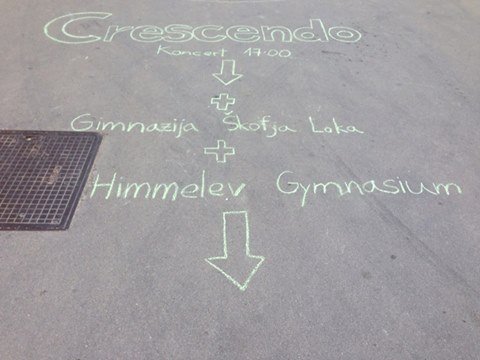 Crescendo
Koncert 17.00
+
Gimnazija Škofja Loka
+
Himmelev Gymnasium